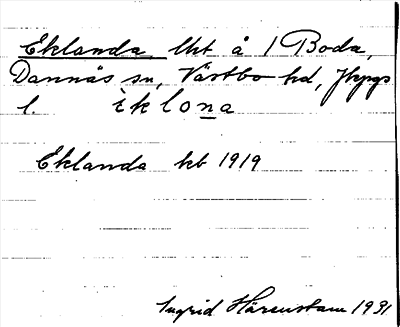 Eklanda, lht å 1 Boda,
Dannäs sn, Västbo hd, Jkpgs
l. èklona
Eklanda kb 1919
Ingrid Härenstam 1931